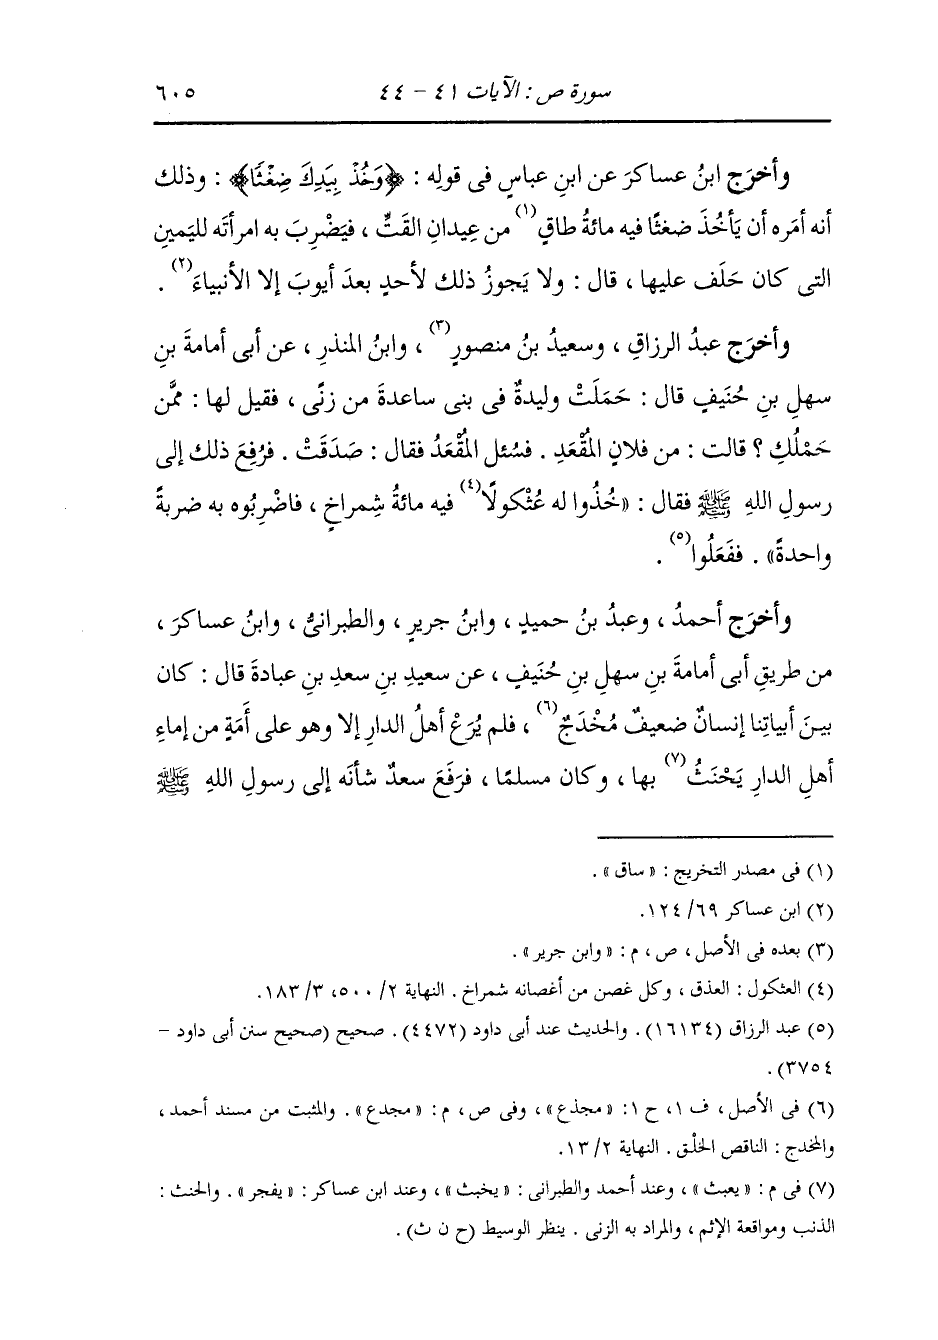 سورة ص : الآيات ٤١ – ٤٤ ٦٠٥
وأخرَج ابنُ عساكرَ عن ابنِ عباسٍ فى قولِه : ﴿وَخُذْ بِيَدِكَ ضِغْثًا﴾ : وذلك
أنه أمَره أن يَأخُذَ ضغثًا فيه مائةُ طاقٍ(١) من عِيدانِ القَتِّ ، فيَضْرِبَ به امرأتَه لليَمينِ
التى كان حَلَف عليها ، قال : ولا يَجوزُ ذلك لأحدٍ بعدَ أيوبَ إلا الأنبياءَ(٢) .
وأخرَج عبدُ الرزاقِ ، وسعيدُ بنُ منصورٍ(٣) ، وابنُ المنذرِ ، عن أبى أمامةَ بنِ
سهلِ بنِ حُنَيفٍ قال : حَمَلَتْ وليدةٌ فى بنى ساعدةَ من زنًى ، فقيل لها : ممَّن
حَمْلُكِ ؟ قالت : من فلانٍ المُقْعَدِ . فسُئل المُقْعَدُ فقال : صَدَقَتْ . فرُفِعَ ذلك إلى
رسولِ اللهِ ﷺ فقال : «خُذُوا له عُثْكولًا(٤) فيه مائةُ شِمراخٍ ، فاضْرِبُوه به ضربةً
واحدةً» . ففَعَلُوا(٥) .
وأخرَج أحمدُ ، وعبدُ بنُ حميدٍ ، وابنُ جريرٍ ، والطبرانىُّ ، وابنُ عساكرَ ،
من طريقِ أبى أمامةَ بنِ سهلِ بنِ حُنَيفٍ ، عن سعيدِ بنِ سعدِ بنِ عبادةَ قال : كان
بينَ أبياتِنا إنسانٌ ضعيفٌ مُخْدَجٌ(٦) ، فلم يُرَعْ أهلُ الدارِ إلا وهو على أَمَةٍ من إماءِ
أهلِ الدارِ يَحْنَثُ(٧) بها ، وكان مسلمًا ، فرَفَعَ سعدٌ شأنَه إلى رسولِ اللهِ ﷺ
(١) فى مصدر التخريج : «ساق» .
(٢) ابن عساكر ٦٩/ ١٢٤.
(٣) بعده فى الأصل ، ص ، م : «وابن جرير» .
(٤) العثكول : العذق ، وكل غصن من أغصانه شمراخ . النهاية ٢/ ٥٠٠، ٣/ ١٨٣.
(٥) عبد الرزاق (١٦١٣٤) . والحديث عند أبى داود (٤٤٧٢) . صحيح (صحيح سنن أبى داود –
٣٧٥٤) .
(٦) فى الأصل ، ف ١، ح ١: «مجذع» ، وفى ص ، م : «مجدع» . والمثبت من مسند أحمد ،
والمخدج : الناقص الخلْق . النهاية ٢/ ١٣.
(٧) فى م : «يعبث» ، وعند أحمد والطبرانى : «يخبث» ، وعند ابن عساكر : «يفجر» . والحنث :
الذنب ومواقعة الإثم ، والمراد به الزنى . ينظر الوسيط (ح ن ث) .